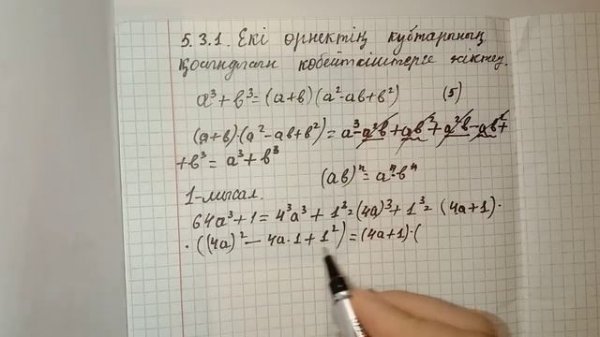 5.3.1. Екі өрнектің кубтарының
қосындысын көбейткіштерге жіктеу.
a³+b³=(a+b)(a²-ab+b²) (5)
(a+b)·(a²-ab+b²)=a³-a²b+ab²+a²b-ab²+
+b³=a³+b³
(ab)ⁿ=aⁿ·bⁿ
1-мысал.
64a³+1=4³a³+1³=(4a)³+1³=(4a+1)·
·((4a)²-4a·1+1²)=(4a+1)·(